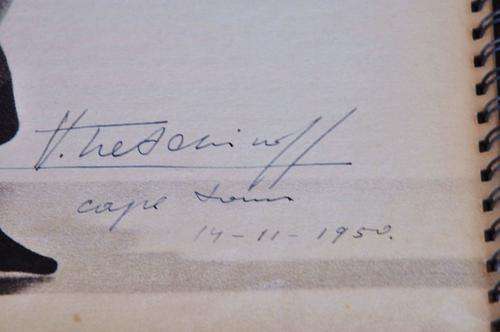 V. Tretchikoff
Cape Town
14-11-1950.